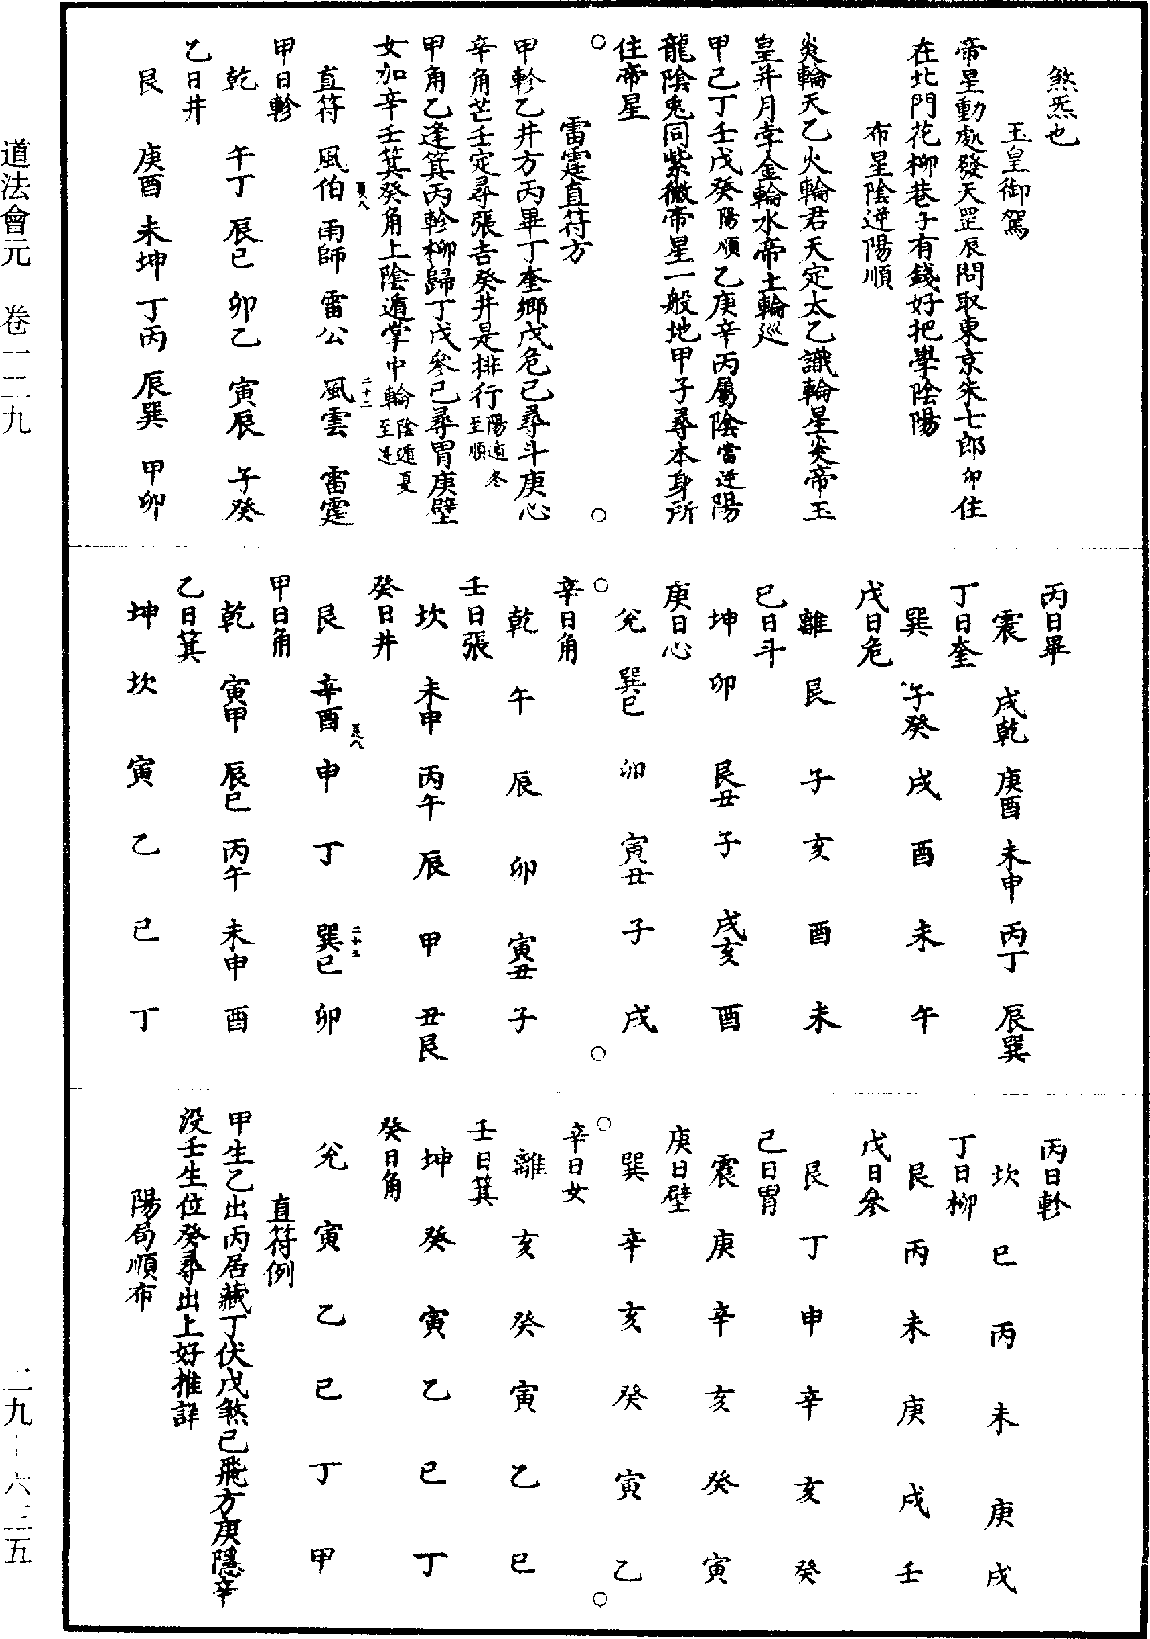 煞炁也
玉皇御駕
帝星動處發天罡辰問取東京朱七郎卯住
在北門花柳巷子有錢好把學陰陽
布星陰逆陽順
炎輪天乙火輪君天定太乙識輪星炎帝玉
皇并月孛金輪水帝土輪巡
甲己丁壬戊癸陽順乙庚辛丙屬陰當逆陽
龍陰兎同紫微帝星一般地甲子尋本身所
住帝星
○ ○
雷霆直符方
甲軫乙井方丙畢丁奎鄉戊危己尋斗庚心
辛角芒壬定尋張吉癸井是排行陽遁冬至順
甲角乙逢箕丙軫柳歸丁戊參己尋胃庚壁
女加辛壬箕癸角上陰遁掌中輪陰遁夏至逆
直符 風伯 雨師 雷公 風雲 雷霆
甲日軫
乾 午丁 辰巳 卯乙 寅辰 子癸
乙日井
艮 庚酉 未坤 丁丙 辰巽 甲卯
丙日畢
震 戌乾 庚酉 未申 丙丁 辰巽
丁日奎
巽 午癸 戌 酉 未 午
戊日危
離 艮 子 亥 酉 未
己日斗
坤 卯 艮丑 子 戌亥 酉
庚日心
兌 巽巳 卯 寅丑 子 戌
○ ○
辛日角
乾 午 辰 卯 寅丑 子
壬日張
坎 未申 丙午 辰 甲 丑艮
癸日井
艮 辛酉 申 丁 巽巳 卯
甲日角
乾 寅甲 辰巳 丙午 未申 酉
乙日箕
坤 坎 寅 乙 巳 丁
丙日軫
坎 巳 丙 未 庚 戌
丁日柳
艮 丙 未 庚 戌 壬
戊日參
艮 丁 申 辛 亥 癸
己日胃
震 庚 辛 亥 癸 寅
庚日壁
巽 辛 亥 癸 寅 乙
○ ○
辛日女
離 亥 癸 寅 乙 巳
壬日箕
坤 癸 寅 乙 巳 丁
癸日角
兌 寅 乙 巳 丁 甲
直符例
甲生乙出丙居藏丁伏戊煞己飛方庚隱辛
沒壬生位癸尋出上好推詳
陽局順布
道法會元 卷一二九
二九-六三五